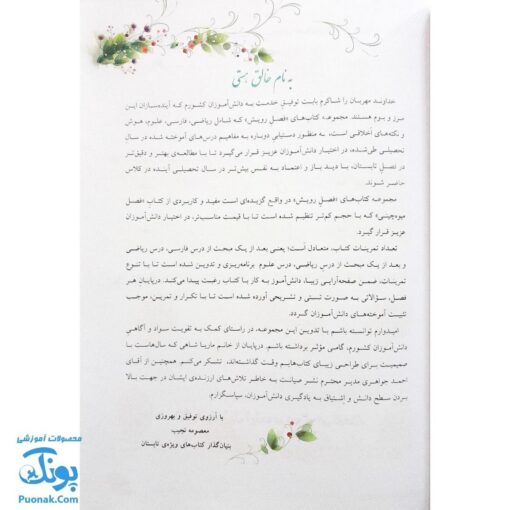 به نام خالق هستی
خداوند مهربان را شاکرم بابت توفیق خدمت به دانش‌آموزان کشورم که آینده‌سازان این
مرز و بوم هستند. مجموعه کتاب‌های «فصل رویش» که شامل ریاضی، فارسی، علوم، هوش
و نکته‌های اخلاقی است، به منظور دستیابی دوباره به مفاهیم درس‌های آموخته شده در سال
تحصیلی طی‌شده، در اختیار دانش‌آموزان عزیز قرار می‌گیرد تا با مطالعه‌ی بهتر و دقیق‌تر
در فصل تابستان، با دید باز و اعتماد به نفس بیش‌تر در سال تحصیلی آینده در کلاس
حاضر شوند.
مجموعه کتاب‌های «فصل رویش» در واقع گزیده‌ای است مفید و کاربردی از کتاب «فصل
میوه‌چینی» که با حجم کم‌تر تنظیم شده است تا با قیمت مناسب‌تر، در اختیار دانش‌آموزان
عزیز قرار گیرد.
تعداد تمرینات کتاب، متعادل است؛ یعنی بعد از یک مبحث از درس فارسی، درس ریاضی
و بعد از یک مبحث از درس ریاضی، درس علوم برنامه‌ریزی و تدوین شده است تا با تنوع
تمرینات، ضمن صفحه‌آرایی زیبا، دانش‌آموز به کار با کتاب رغبت پیدا می‌کند. درپایان هر
فصل، سؤالاتی به صورت تستی و تشریحی آورده شده است تا با تکرار و تمرین، موجب
تثبیت آموخته‌های دانش‌آموزان گردد.
امیدوارم توانسته باشم با تدوین این مجموعه، در راستای کمک به تقویت سواد و آگاهی
دانش‌آموزان کشورم، گامی مؤثر برداشته باشم. درپایان از خانم ماریا شاهی که سال‌هاست با
صمیمیت برای طراحی زیبای کتاب‌هایم وقت گذاشته‌اند، تشکر می‌کنم. همچنین از آقای
احمد جواهری مدیر محترم نشر صیانت به خاطر تلاش‌های ارزنده‌ی ایشان در جهت بالا
بردن سطح دانش و اشتیاق به یادگیری دانش‌آموزان، سپاسگزارم.
با آرزوی توفیق و بهروزی
معصومه نجیب
بنیان‌گذار کتاب‌های ویژه‌ی تابستان
محصولات آموزشی
پونک
Puonak.Com